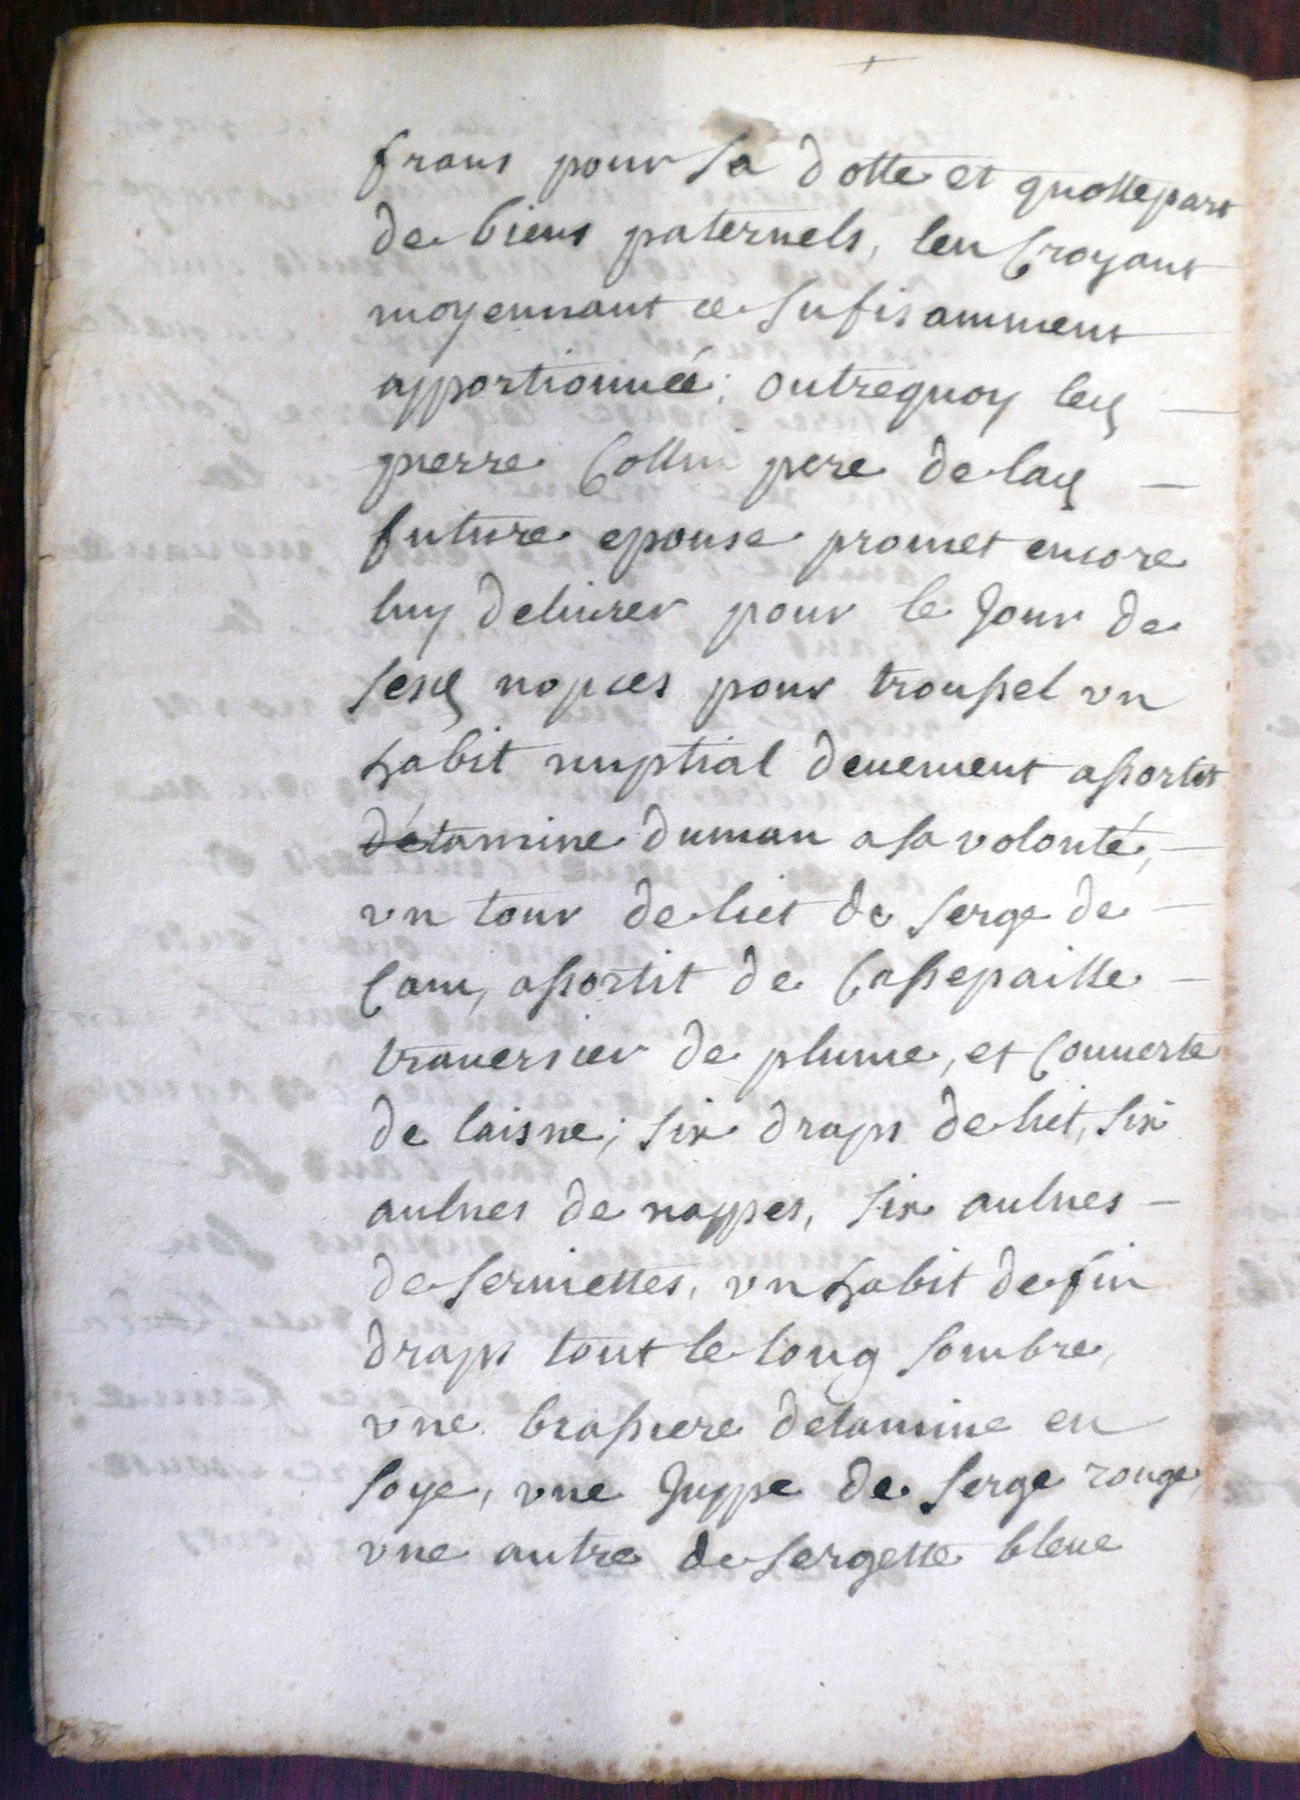 frans pour sa dotte et quottepart
de biens paternels, len croyant
moyennant ce sufisamment
apportionnéé; outrequoy led
pierre Collin pere de lad
future epouse promet encore
luy deliurer pour le Jour de
sesd nopces pour troussel vn
habit nuptial deuement assortit
détamine duman a sa volonté,
vn tour de liet de serge de
Cam, assortit de Cassepaille
trauersier de plume, et Couuerte
de laisne; six draps de liet, six
aulnes de nappes, six aulnes
de seruiettes, vn habit de fin
draps tout le long sombre,
vne brassiere detamine en
soye, vne Juppe de serge rouge,
vne autre de sergette bleue